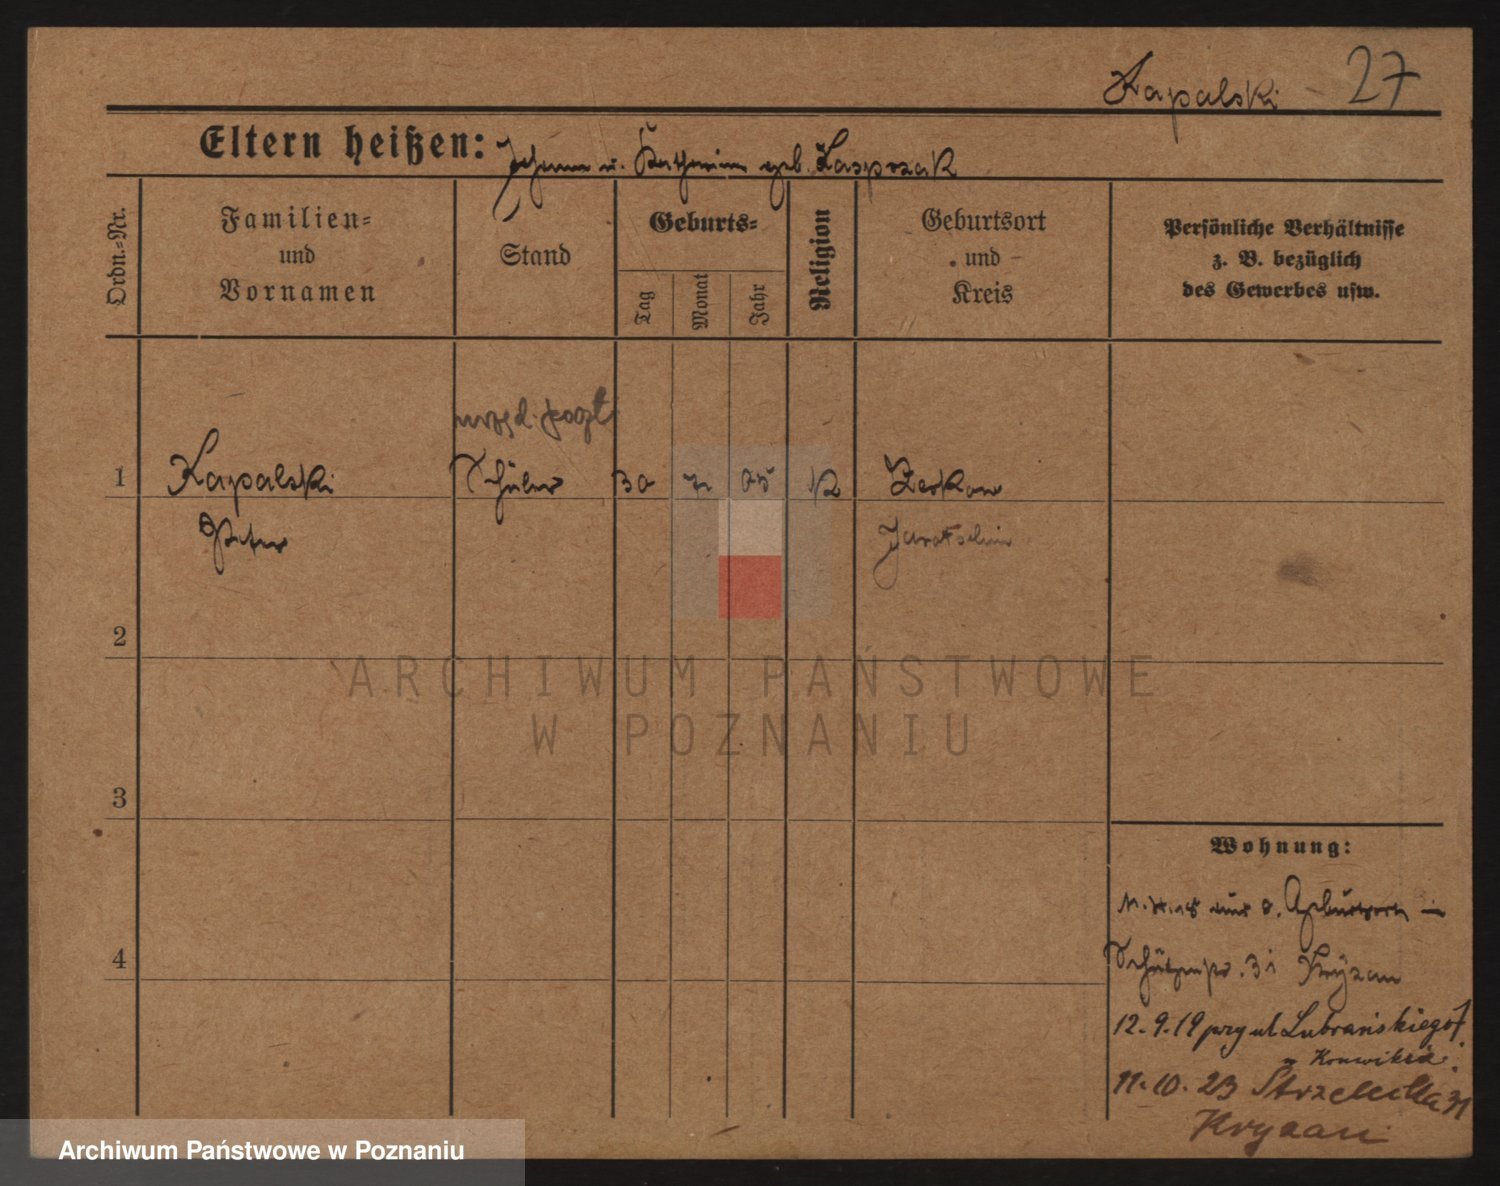 Kapalski - 27
Eltern heißen: Johann u. Katharina geb. Kasprzak
Ordn.-Nr.
Familien-
und
Vornamen
Stand
Geburts-
Tag
Monat
Jahr
Religion
Geburtsort
und
Kreis
Persönliche Verhältnisse
z. B. bezüglich
des Gewerbes usw.
1
Kapalski
Schüler
30
05
K
Zerkow
Peter
Jarotschin
2
3
4
ARCHIWUM PAŃSTWOWE
W POZNANIU
Wohnung:
Schützenstr. 31 Kryzan
12.9.19 przy ul Lubrańskiego 7
w Konwikcie
11.10.23 Strzelecka 31
Kryzan
Archiwum Państwowe w Poznaniu